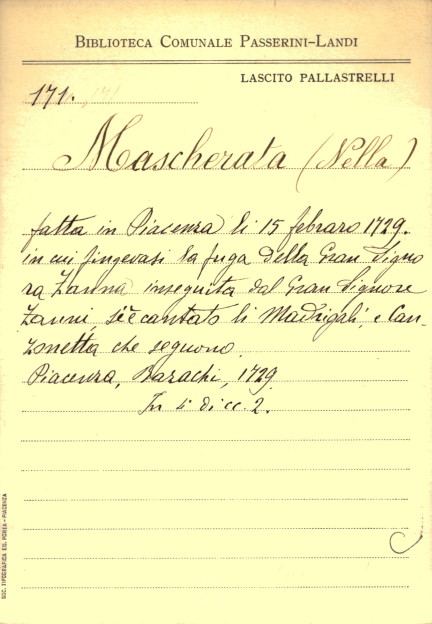 BIBLIOTECA COMUNALE PASSERINI-LANDI
LASCITO PALLASTRELLI
171.
Mascherata (Nella)
fatta in Piacenza li 15 febraro 1729.
in cui fingevasi la fuga della Gran Signo
ra Zanna inseguita dal Gran Signore
Zanni, si è cantato li Madrigali, e Can-
zonetta che seguono.
Piacenza, Barachi, 1729
In 4° di cc. 2.
SOC. TIPOGRAFICA ED. PORTA - PIACENZA